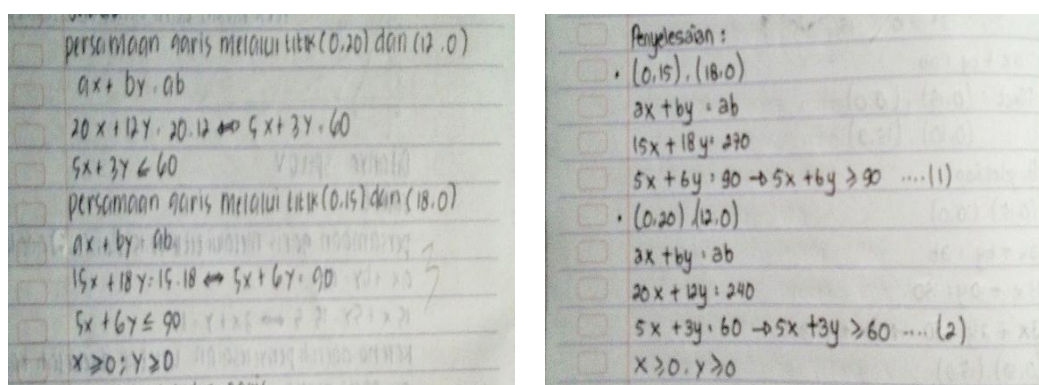 persamaan garis melalui titik (0,20) dan (12,0)
ax + by = ab
20x + 12y = 20.12 ⇔ 5x + 3y = 60
5x + 3y ≤ 60
persamaan garis melalui titik (0,15) dan (18,0)
ax + by = ab
15x + 18y = 15.18 ⇔ 5x + 6y = 90
5x + 6y ≤ 90
x ≥ 0 ; y ≥ 0
Penyelesaian :
• (0,15), (18,0)
ax + by = ab
15x + 18y = 270
5x + 6y = 90 → 5x + 6y ≥ 90 ....(1)
• (0,20) (12,0)
ax + by = ab
20x + 12y = 240
5x + 3y = 60 → 5x + 3y ≥ 60 ....(2)
x ≥ 0, y ≥ 0